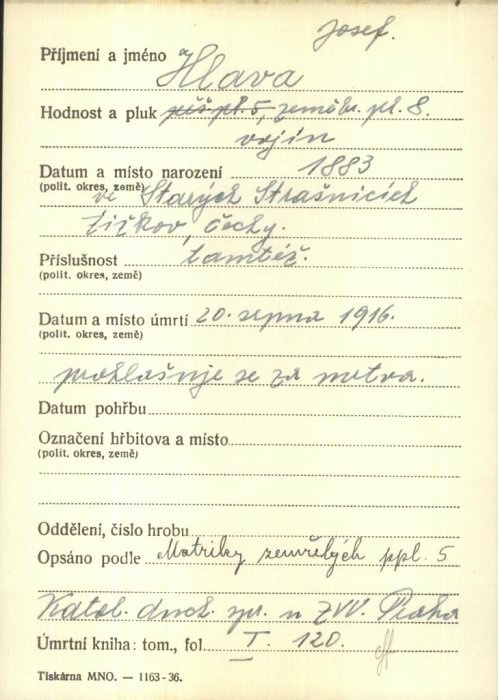 Josef.
Příjmení a jméno Hlava
Hodnost a pluk pěš pl. 5, zeměbr. pl. 8.
vojín
Datum a místo narození 1883
(polit. okres, země) ve Starých Strašnicích
Žižkov, Čechy.
Příslušnost tamtéž.
(polit. okres, země)
Datum a místo úmrtí 20. srpna 1916.
(polit. okres, země)
prohlašuje se za mrtva.
Datum pohřbu
Označení hřbitova a místo
(polit. okres, země)
Oddělení, číslo hrobu
Opsáno podle Matriky zemřelých ppl. 5
Katol. duch. spr. u ZVV. Praha
Úmrtní kniha: tom., fol. I. 120.
Tiskárna MNO. — 1163-36.